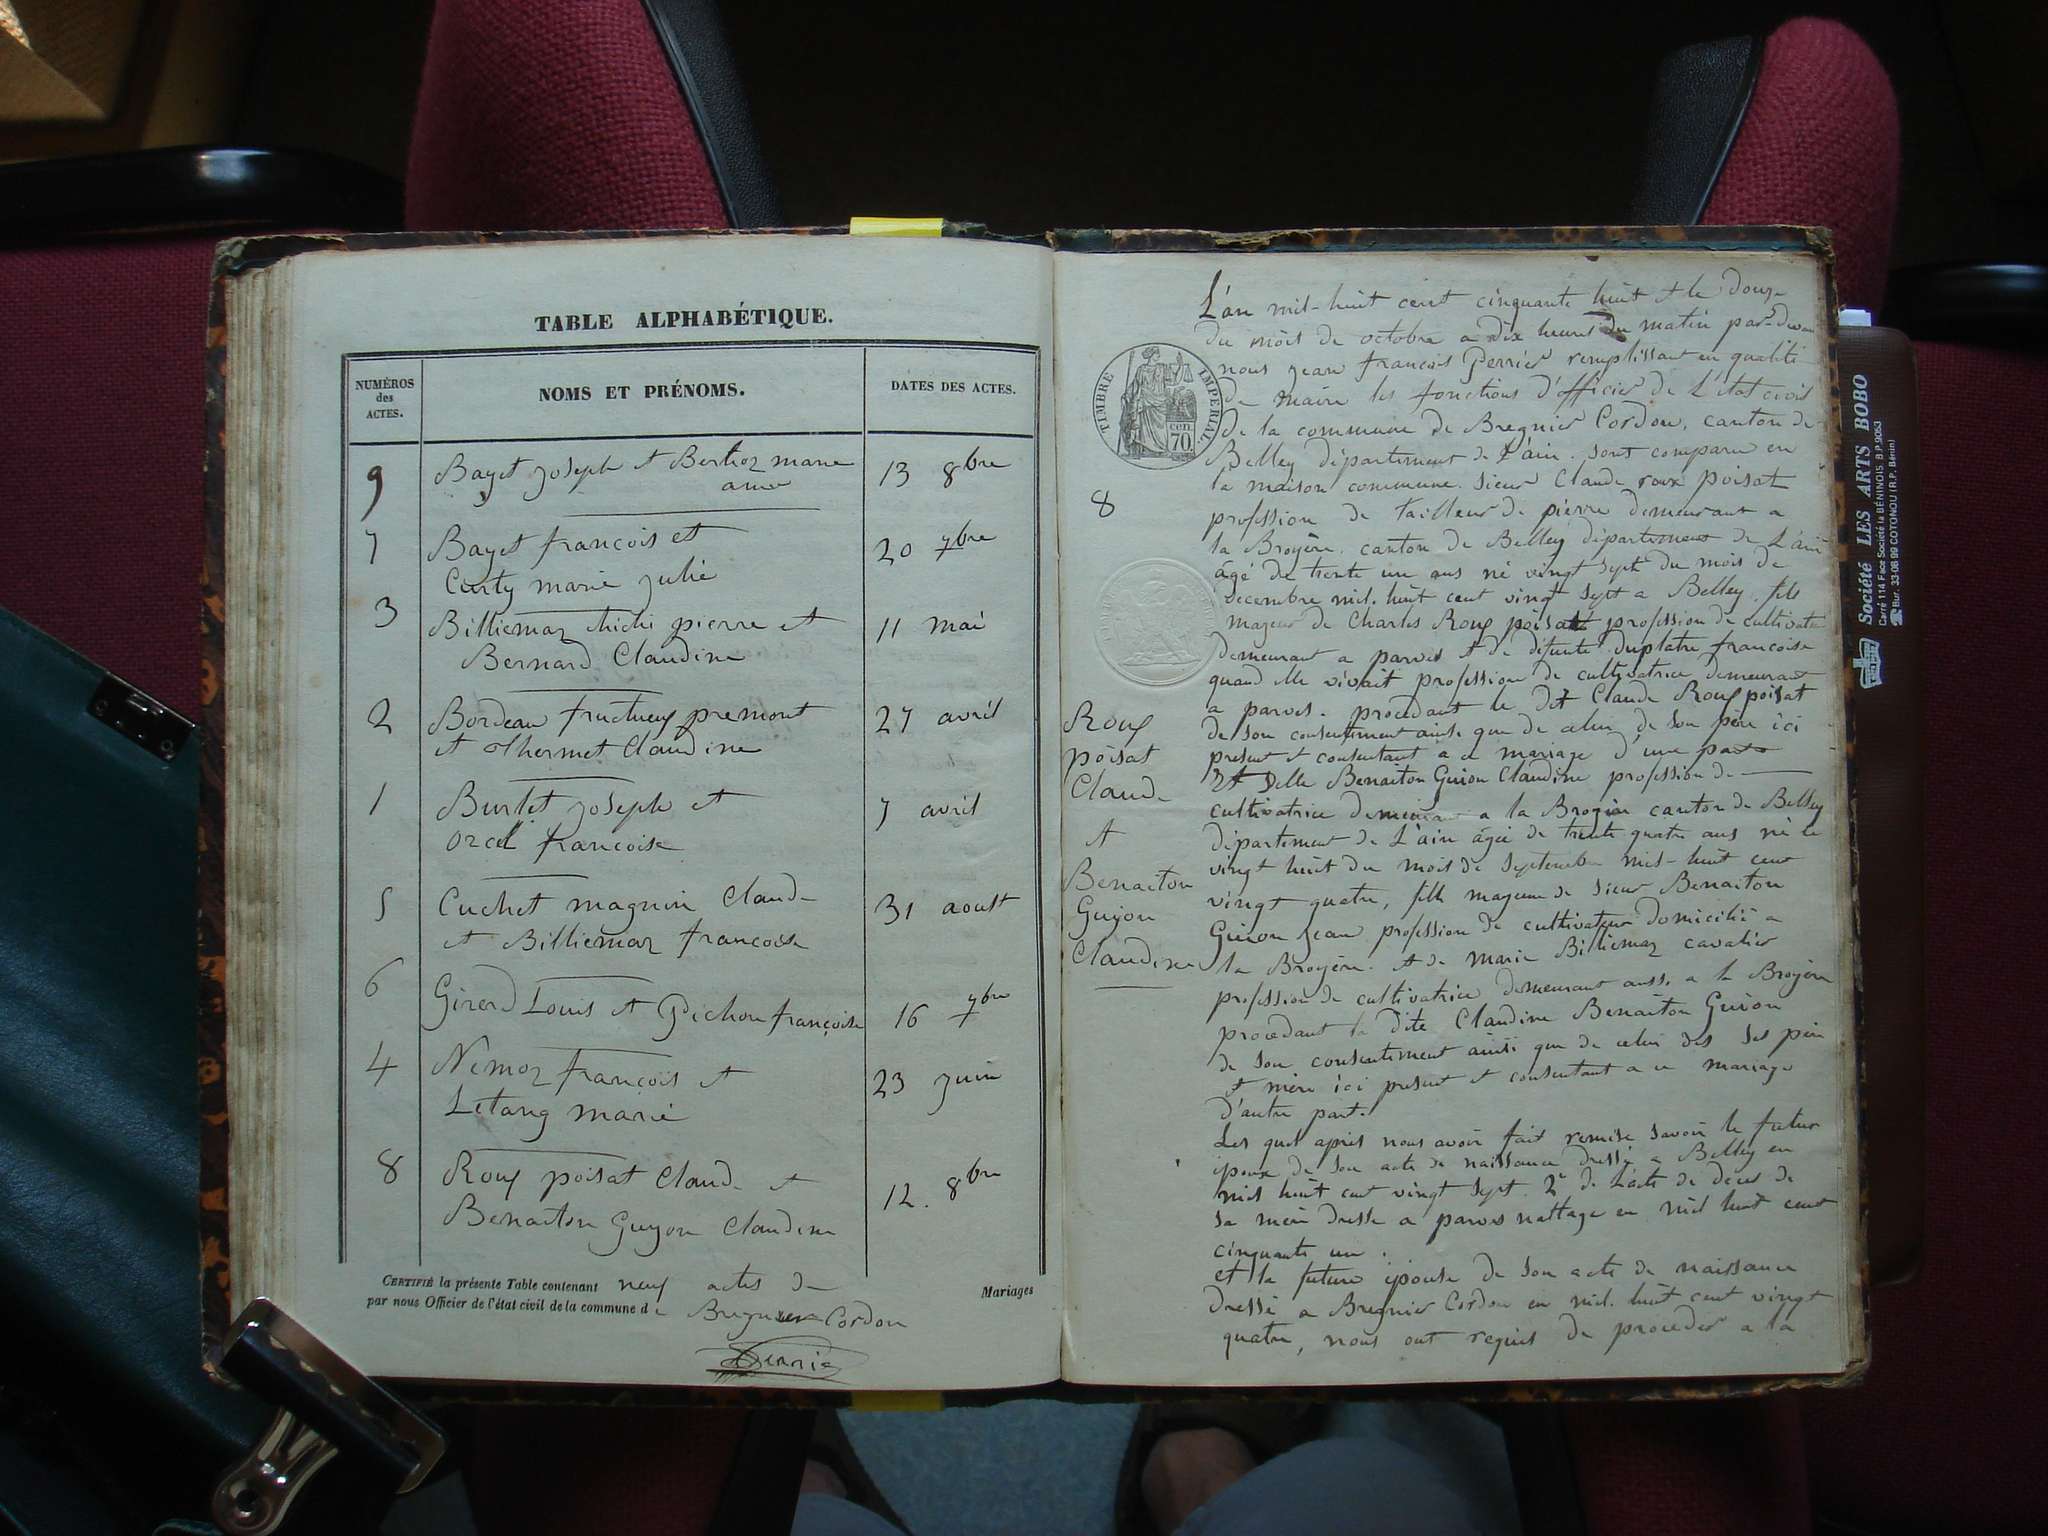 TABLE ALPHABÉTIQUE.
NUMÉROS des ACTES. NOMS ET PRÉNOMS. DATES DES ACTES.
9 Bayet joseph et Berthoz marie 13 8bre
anne
7 Bayet françois et 20 7bre
Curty marie julie
3 Billiemaz chichi pierre et 11 mai
Bernard Claudine
2 Bordeau fructueux premont 27 avril
et thermet Claudine
1 Burlet joseph et 7 avril
orcel francoise
5 Cuchet magnin Claude 31 aoust
et Billiemaz francoise
6 Girerd Louis et Pichon françoise 16 7bre
4 Nemoz françois et 23 juin
Letang marie
8 Roux poisat Claude et 12. 8bre
Benaiton Guyon Claudine
CERTIFIÉ la présente Table contenant neuf actes de Mariages
par nous Officier de l'état civil de la commune de Bregnier Cordon
Perrier
L'an mil-huit cent cinquante huit et le douze
du mois de octobre a dix heures du matin par-devant
nous jean françois Perrier remplissant en qualité
de maire les fonctions d'officier de L'état civil
de la commune de Bregnier Cordon, canton de
Belley département de L'ain. sont comparu en
la maison commune. sieur Claude roux poisat
profession de tailleur de pierre demeurant a
la Broyère. canton de Belley département de L'ain
âgé de trente un ans né vingt sept du mois de
decembre mil. huit cent vingt sept a Belley. fils
majeur de Charles Roux poisat profession de cultivateur
demeurant a parves et de défunte duplatre françoise
quand elle vivait profession de cultivatrice demeurant
a parves. procedant le dit Claude Roux poisat
de son consentement ainsi que de celui de son père ici
present et consentant a ce mariage d'une part
Et Delle Benaiton Guion Claudine profession de
cultivatrice demeurant a la Broyère canton de Belley
département de L'ain âgée de trente quatre ans né le
vingt huit du mois de septembre mil-huit cent
vingt quatre, fille majeure de sieur Benaiton
Guion jean profession de cultivateur domicilié a
la Broyère. et de marie Billiemaz cavalier
profession de cultivatrice demeurant aussi a la Broyère
procedant la dite Claudine Benaiton Guion
de son consentement ainsi que de celui des ses père
et mère ici present et consentant a ce mariage
d'autre part.
Les quel après nous avoir fait remise savoir le futur
époux de son acte de naissance dressé a Belley en
mil huit cent vingt sept. 2° de L'acte de deces de
sa mère dressé a parves nattage en mil huit cent
cinquante un.
et la future épouse de son acte de naissance
dressé a Bregnier Cordon en mil. huit cent vingt
quatre, nous ont requis de proceder a la
TIMBRE IMPERIAL
70 cen
8
Roux
poisat
Claude
et
Benaiton
Guyon
Claudine
Société LES ARTS BOBO
Carré 114 Face Société la BÉNINOIS. B.P. 9053
Bur. 33-06-99 COTONOU (R.P. Bénin)